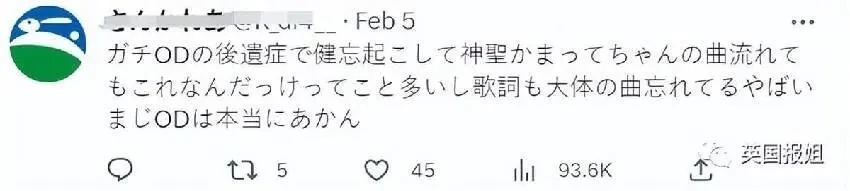 · Feb 5
ガチODの後遺症で健忘起こして神聖かまってちゃんの曲流れて
もこれなんだっけってこと多いし歌詞も大体の曲忘れてるやばい
まじODは本当にあかん
5 45 93.6K
英国报姐